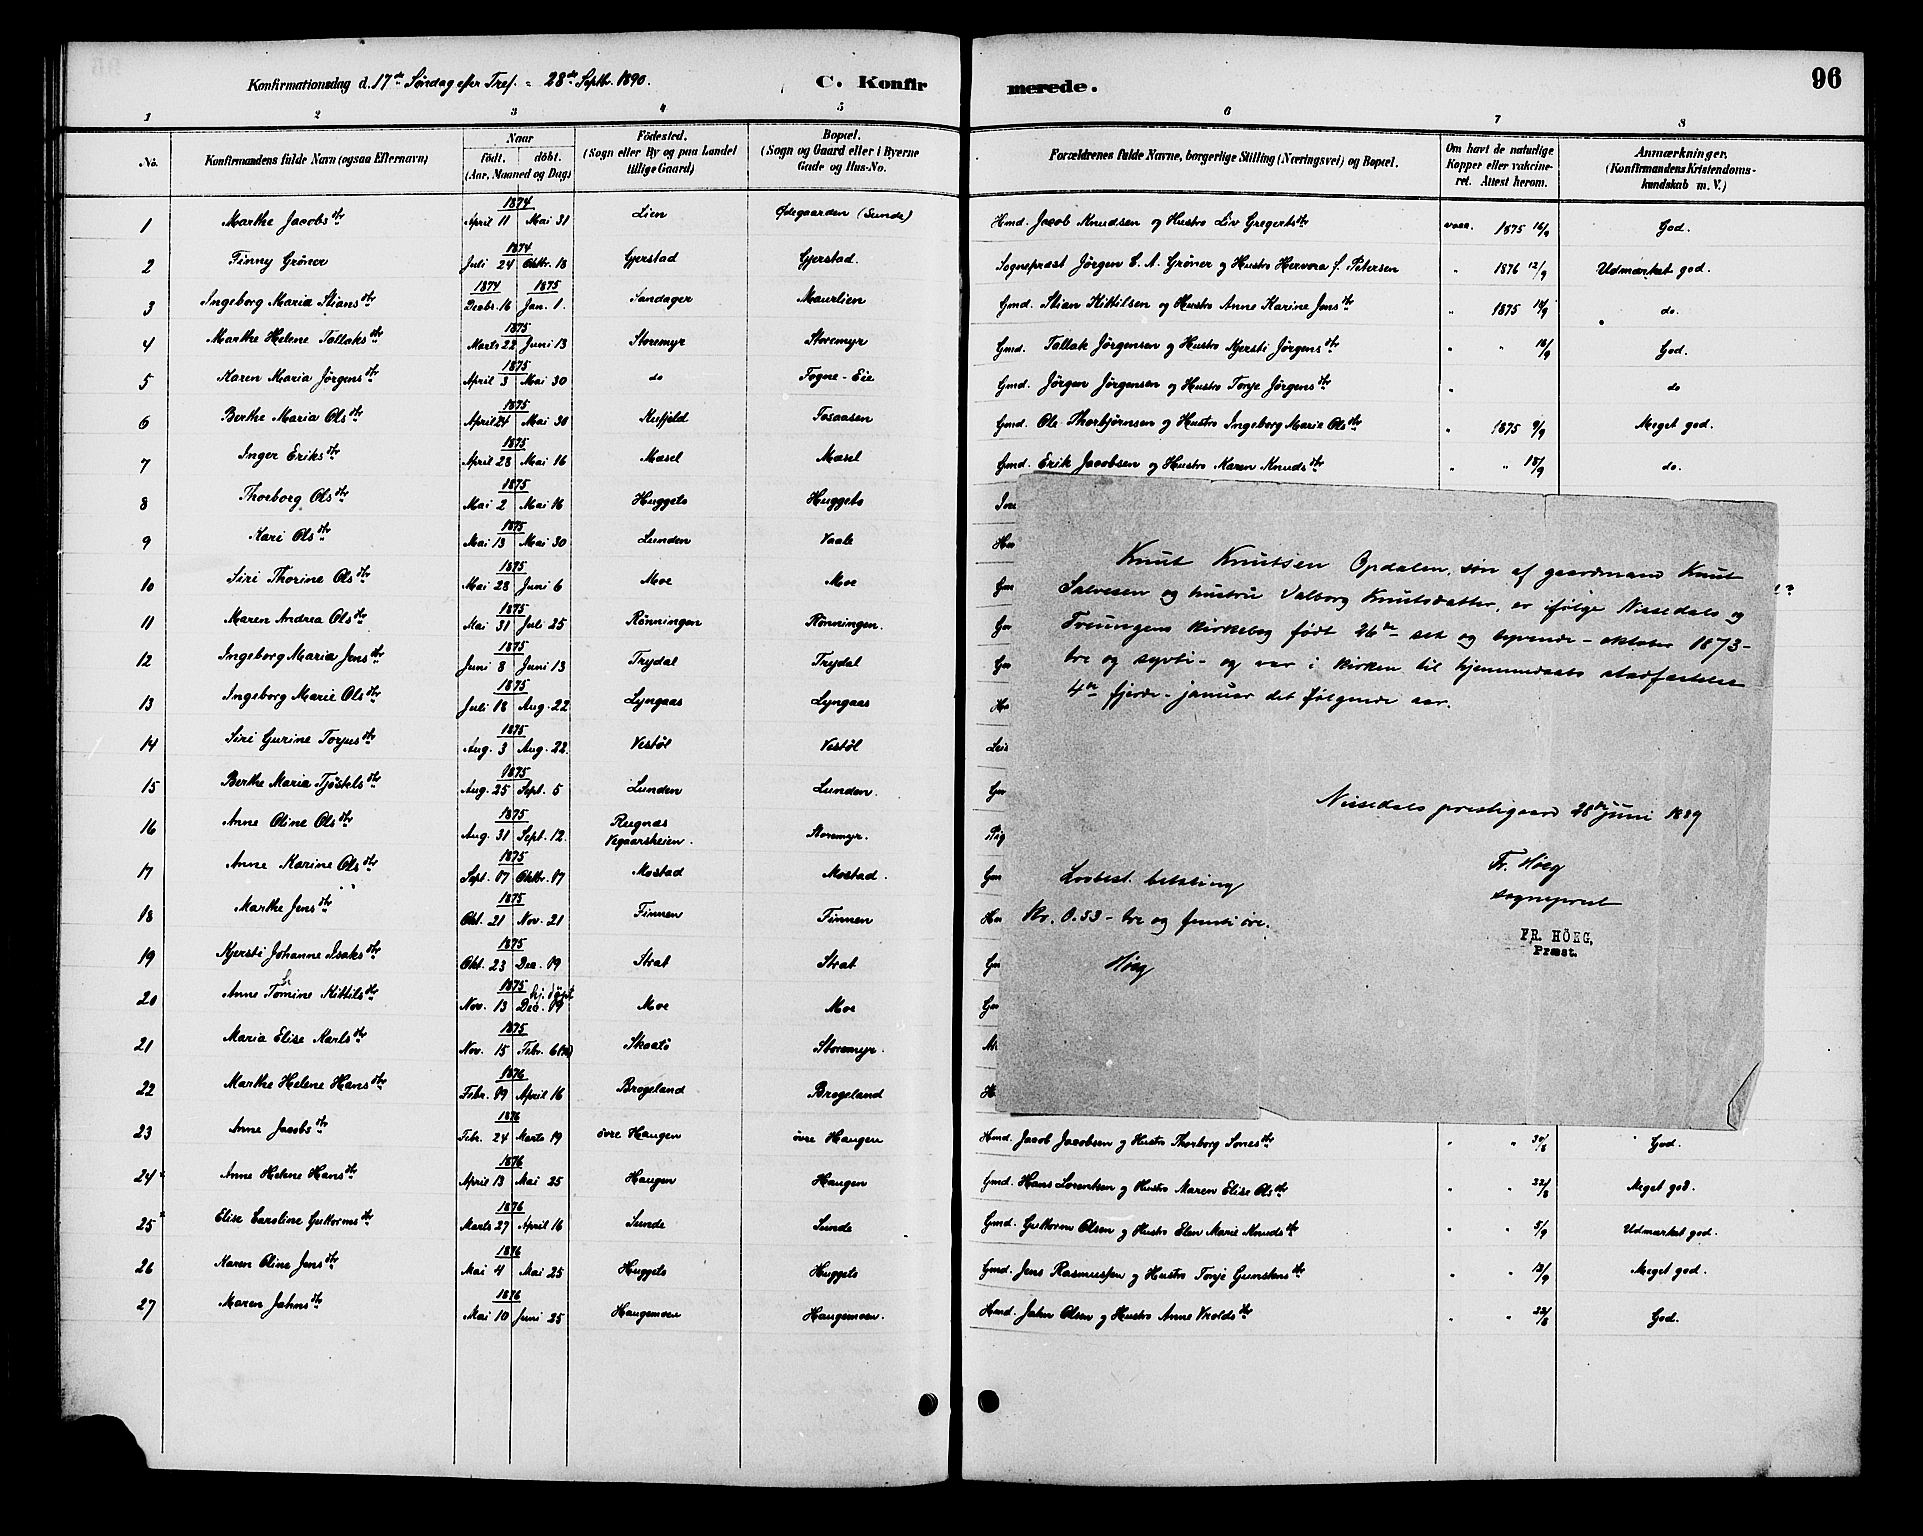 96
Konfirmationsdag d. 17de Søndag efter Tref. = 28de Septbr. 1890. C. Konfirmerede.
1 2 3 4 5 6 7 8
No. Konfirmandens fulde Navn (ogsaa Efternavn) Naar født. døbt. (Aar, Maaned og Dag) Födested. (Sogn eller By og paa Landet tillige Gaard) Bopæl. (Sogn og Gaard eller i Byerne Gade og Hus-No. Forældrenes fulde Navne, borgerlige Stilling (Næringsvei) og Bopæl. Om havt de naturlige Kopper eller vakcineret. Attest herom. Anmærkninger. (Konfirmandens Kristendomskundskab m. V.)
1 Marthe Jacobsdtr 1874 April 11 Mai 31 Lien Ødegaarden (Sunde) Hmd. Jacob Knudsen og Hustro Liv Gregertsdtr vacc. 1875 16/9 God.
2 Finny Grøner 1874 Juli 24 Oktbr. 18 Gjerstad Gjerstad. Sognepræst Jørgen C. A. Grøner og Hustro Hervora f. Petersen " 1876 12/9 Udmærket god.
3 Ingeborg Maria Stiansdtr 1874 Decbr. 16 1875 Jan. 1. Sandager Maurlien Gmd. Stian Kittilsen og Hustro Anne Karine Jensdtr " 1875 18/9 do.
4 Marthe Helene Tallaksdtr 1875 Marts 22 Juni 13 Storemyr Storemyr Gmd. Tallak Jørgensen og Hustro Kjersti Jørgensdtr " " 18/9 God.
5 Karen Maria Jørgensdtr 1875 April 3 Mai 30 do Fogne-Eie Gmd. Jørgen Jørgensen og Hustro Tonje Jørgensdtr " do
6 Berthe Maria Olsdtr 1875 April 24 Mai 30 Kufjeld Tosaasen Gmd. Ole Thorbjørnsen og Hustro Ingeborg Marie Olsdtr " 1875 9/9 Meget god.
7 Inger Eriksdtr 1875 April 28 Mai 16 Mæsel Mæsel Gmd. Erik Jacobsen og Hustro Maren Knudsdtr " " 18/9 do.
8 Thorborg Olsdtr 1875 Mai 2 Mai 16 Huggets Huggets
9 Kari Olsdtr 1875 Mai 13 Mai 30 Lunden Vaale
10 Siri Thorine Olsdtr 1875 Mai 28 Juni 6 Moe Moe
11 Maren Andrea Olsdtr 1875 Mai 31 Juli 25 Rønningen Rønningen.
12 Ingeborg Maria Jensdtr 1875 Juni 8 Juni 13 Trydal Trydal
13 Ingeborg Marie Olsdtr 1875 Juli 18 Aug. 22 Lyngaas Lyngaas
14 Siri Gurine Torjusdtr 1875 Aug. 3 Aug. 22. Vestøl Vestøl
15 Berthe Maria Tjøstelsdtr 1875 Aug. 25 Sept. 5 Lunden Lunden.
16 Anne Oline Olsdtr 1875 Aug. 31 Sept. 12. Rugnæs Vegaarsheien. Storemyr.
17 Anne Karine Olsdtr 1875 Sept. 07 Oktbr. 17 Mostad Mostad.
18 Marthe Jensdtr 1875 Okt. 21 Nov. 21 Finnen Finnen
19 Kjersti Johanne Isaksdtr 1875 Okt. 23 Dec. 19 Strat Strat
20 Anne Tomine Kittilsdtr 1875 Nov. 13 hj. døpt Dec. 19 Moe Moe
21 Maria Elise Karlsdtr 1875 Nov. 15 Febr. 6 (76) Skaatø Storemyr.
22 Marthe Helene Hansdtr 1876 Febr. 09 April 16 Brogeland Brogeland
23 Anne Jacobsdtr 1876 Febr. 24 Marts 19 øvre Haugen øvre Haugen Hmd. Jacob Jacobsen og Hustro Thorborg Sonesdtr " " 30/8 God.
24 Anne Helene Hansdtr 1876 April 13 Mai 25 Haugen Haugen Gmd. Hans Lorentsen og Hustro Maren Elise Olsdtr " " 22/8 Meget god.
25 Elise Caroline Guttormsdtr 1876 Marts 27 April 16 Sunde Sunde Gmd. Guttorm Olsen og Hustro Elen Marie Knudsdtr " " 5/9 Udmærket god.
26 Karen Oline Jensdtr 1876 Mai 4 Mai 25 Huggets Huggets Gmd. Jens Rasmussen og Hustro Tonje Gunstensdtr " " 13/9 Meget god.
27 Maren Jahnsdtr 1876 Mai 10 Juni 25 Haugemoen Haugemoen. Hmd. Jahn Olsen og Hustro Anne Vroldsdtr " " 22/8 God.
Knut Knutsen Opdalen, søn af gaardmand Knut
Salvesen og hustru Valborg Knutsdatter, er ifølge Nissedals og
Treungens kirkebog født 26de set og tyvende - oktober 1873 -
tre og sytti - og var i kirken til hjemmedaabs stadfæstelse
4de fjerde - januar det følgende aar.
Nissedals prestegaard 28de juni 1889
Fr. Høeg
sogneprest
FR. HÖEG,
Præst.
Lovbest. betaling
Kr. 0.53 - tre og femti øre.
Høeg